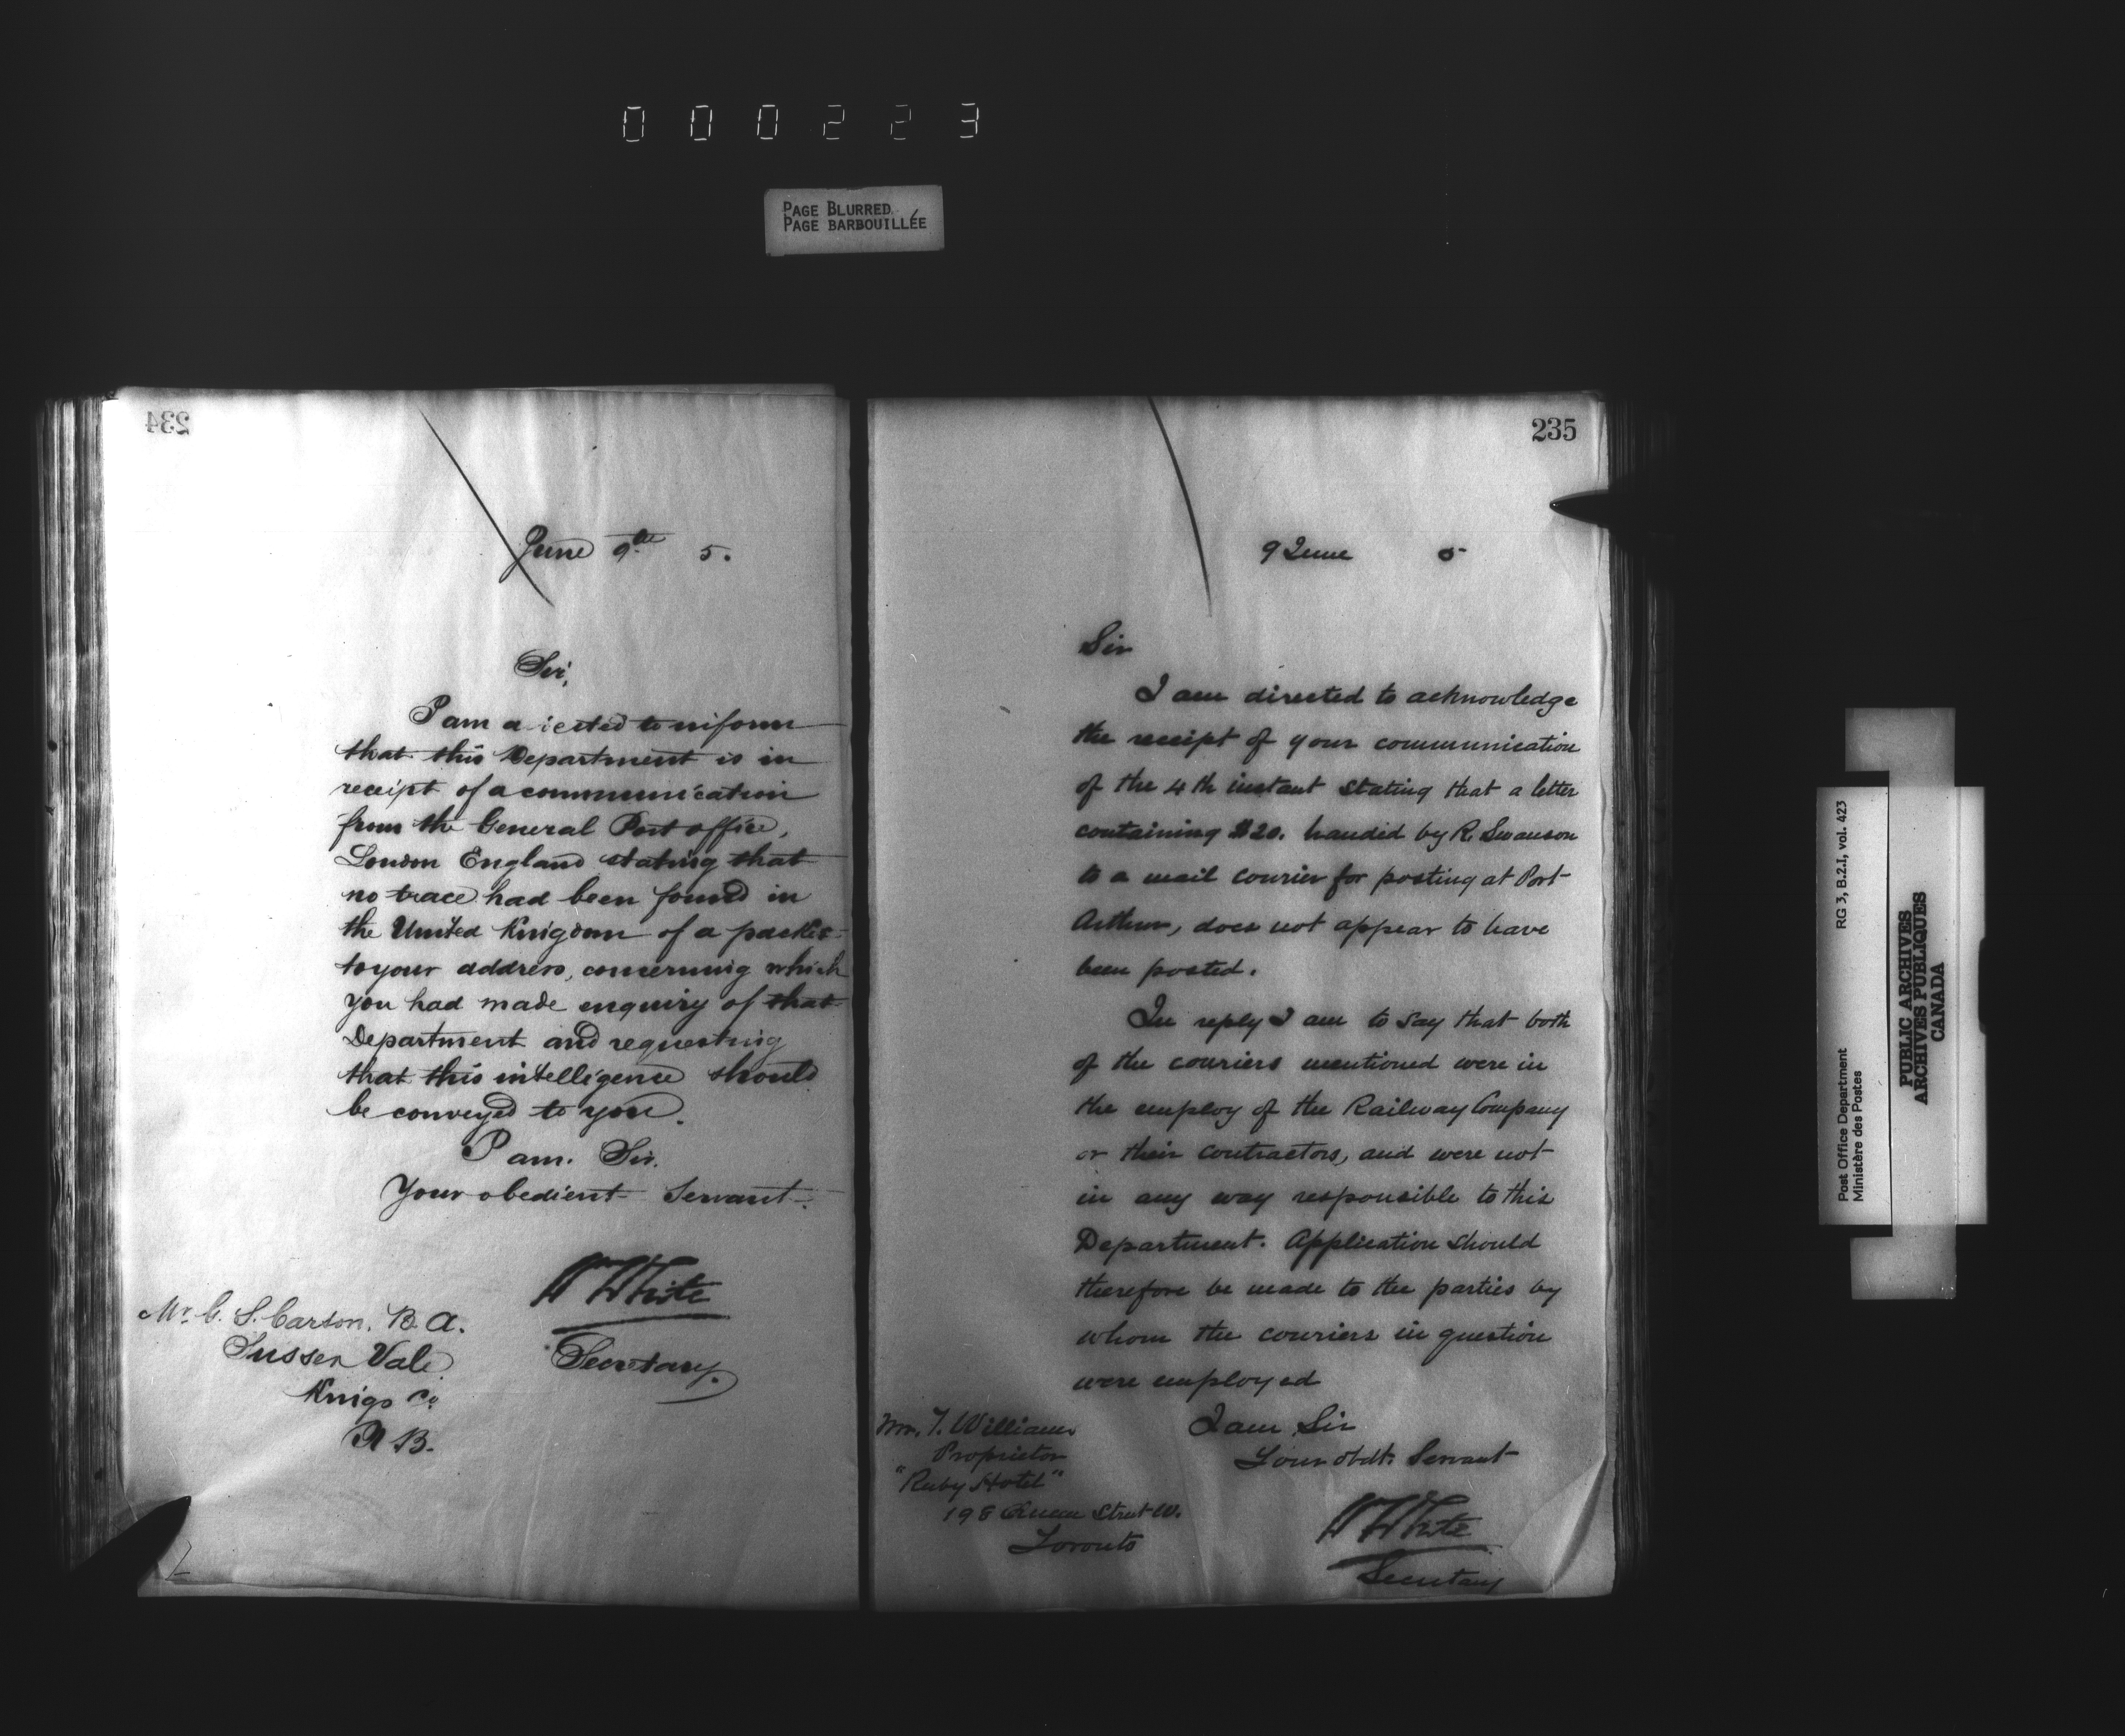 000223
PAGE BLURRED
PAGE BARBOUILLÉE
234
June 9th 5.
Sir,
I am directed to inform
that this Department is in
receipt of a communication
from the General Post office,
London England stating that
no trace had been found in
the United Kingdom of a packet
to your address, concerning which
you had made enquiry of that
Department and requesting
that this intelligence should
be conveyed to you.
I am. Sir.
Your obedient Servant.
W White
Secretary.
Mr. G. S. Carson, B. A.
Sussex Vale
Kings Co
N B.
235
9 June 5
Sir
I am directed to acknowledge
the receipt of your communication
of the 4th instant stating that a letter
containing $20. handed by R. Swanson
to a mail courier for posting at Port
Arthur, does not appear to have
been posted.
In reply I am to say that both
of the couriers mentioned were in
the employ of the Railway Company
or their contractors, and were not
in any way responsible to this
Department. Application should
therefore be made to the parties by
whom the couriers in question
were employed
I am Sir
Your obdt. Servant
W White
Secretary
Mr. T. Williams
Proprietor
"Ruby Hotel"
198 Queen Street W.
Toronto
Post Office Department
Ministère des Postes
RG 3, B.2.I, vol. 423
PUBLIC ARCHIVES
ARCHIVES PUBLIQUES
CANADA